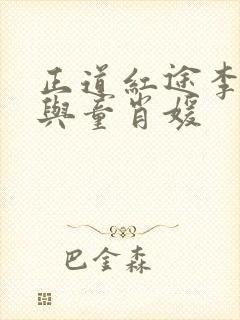 正道紅途李
與童肖媛
巴金森